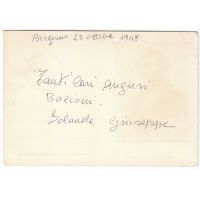 Bergamo 23 ottobre 1948
Tanti Cari Auguri
Bacioni.
Iolanda Giuseppe